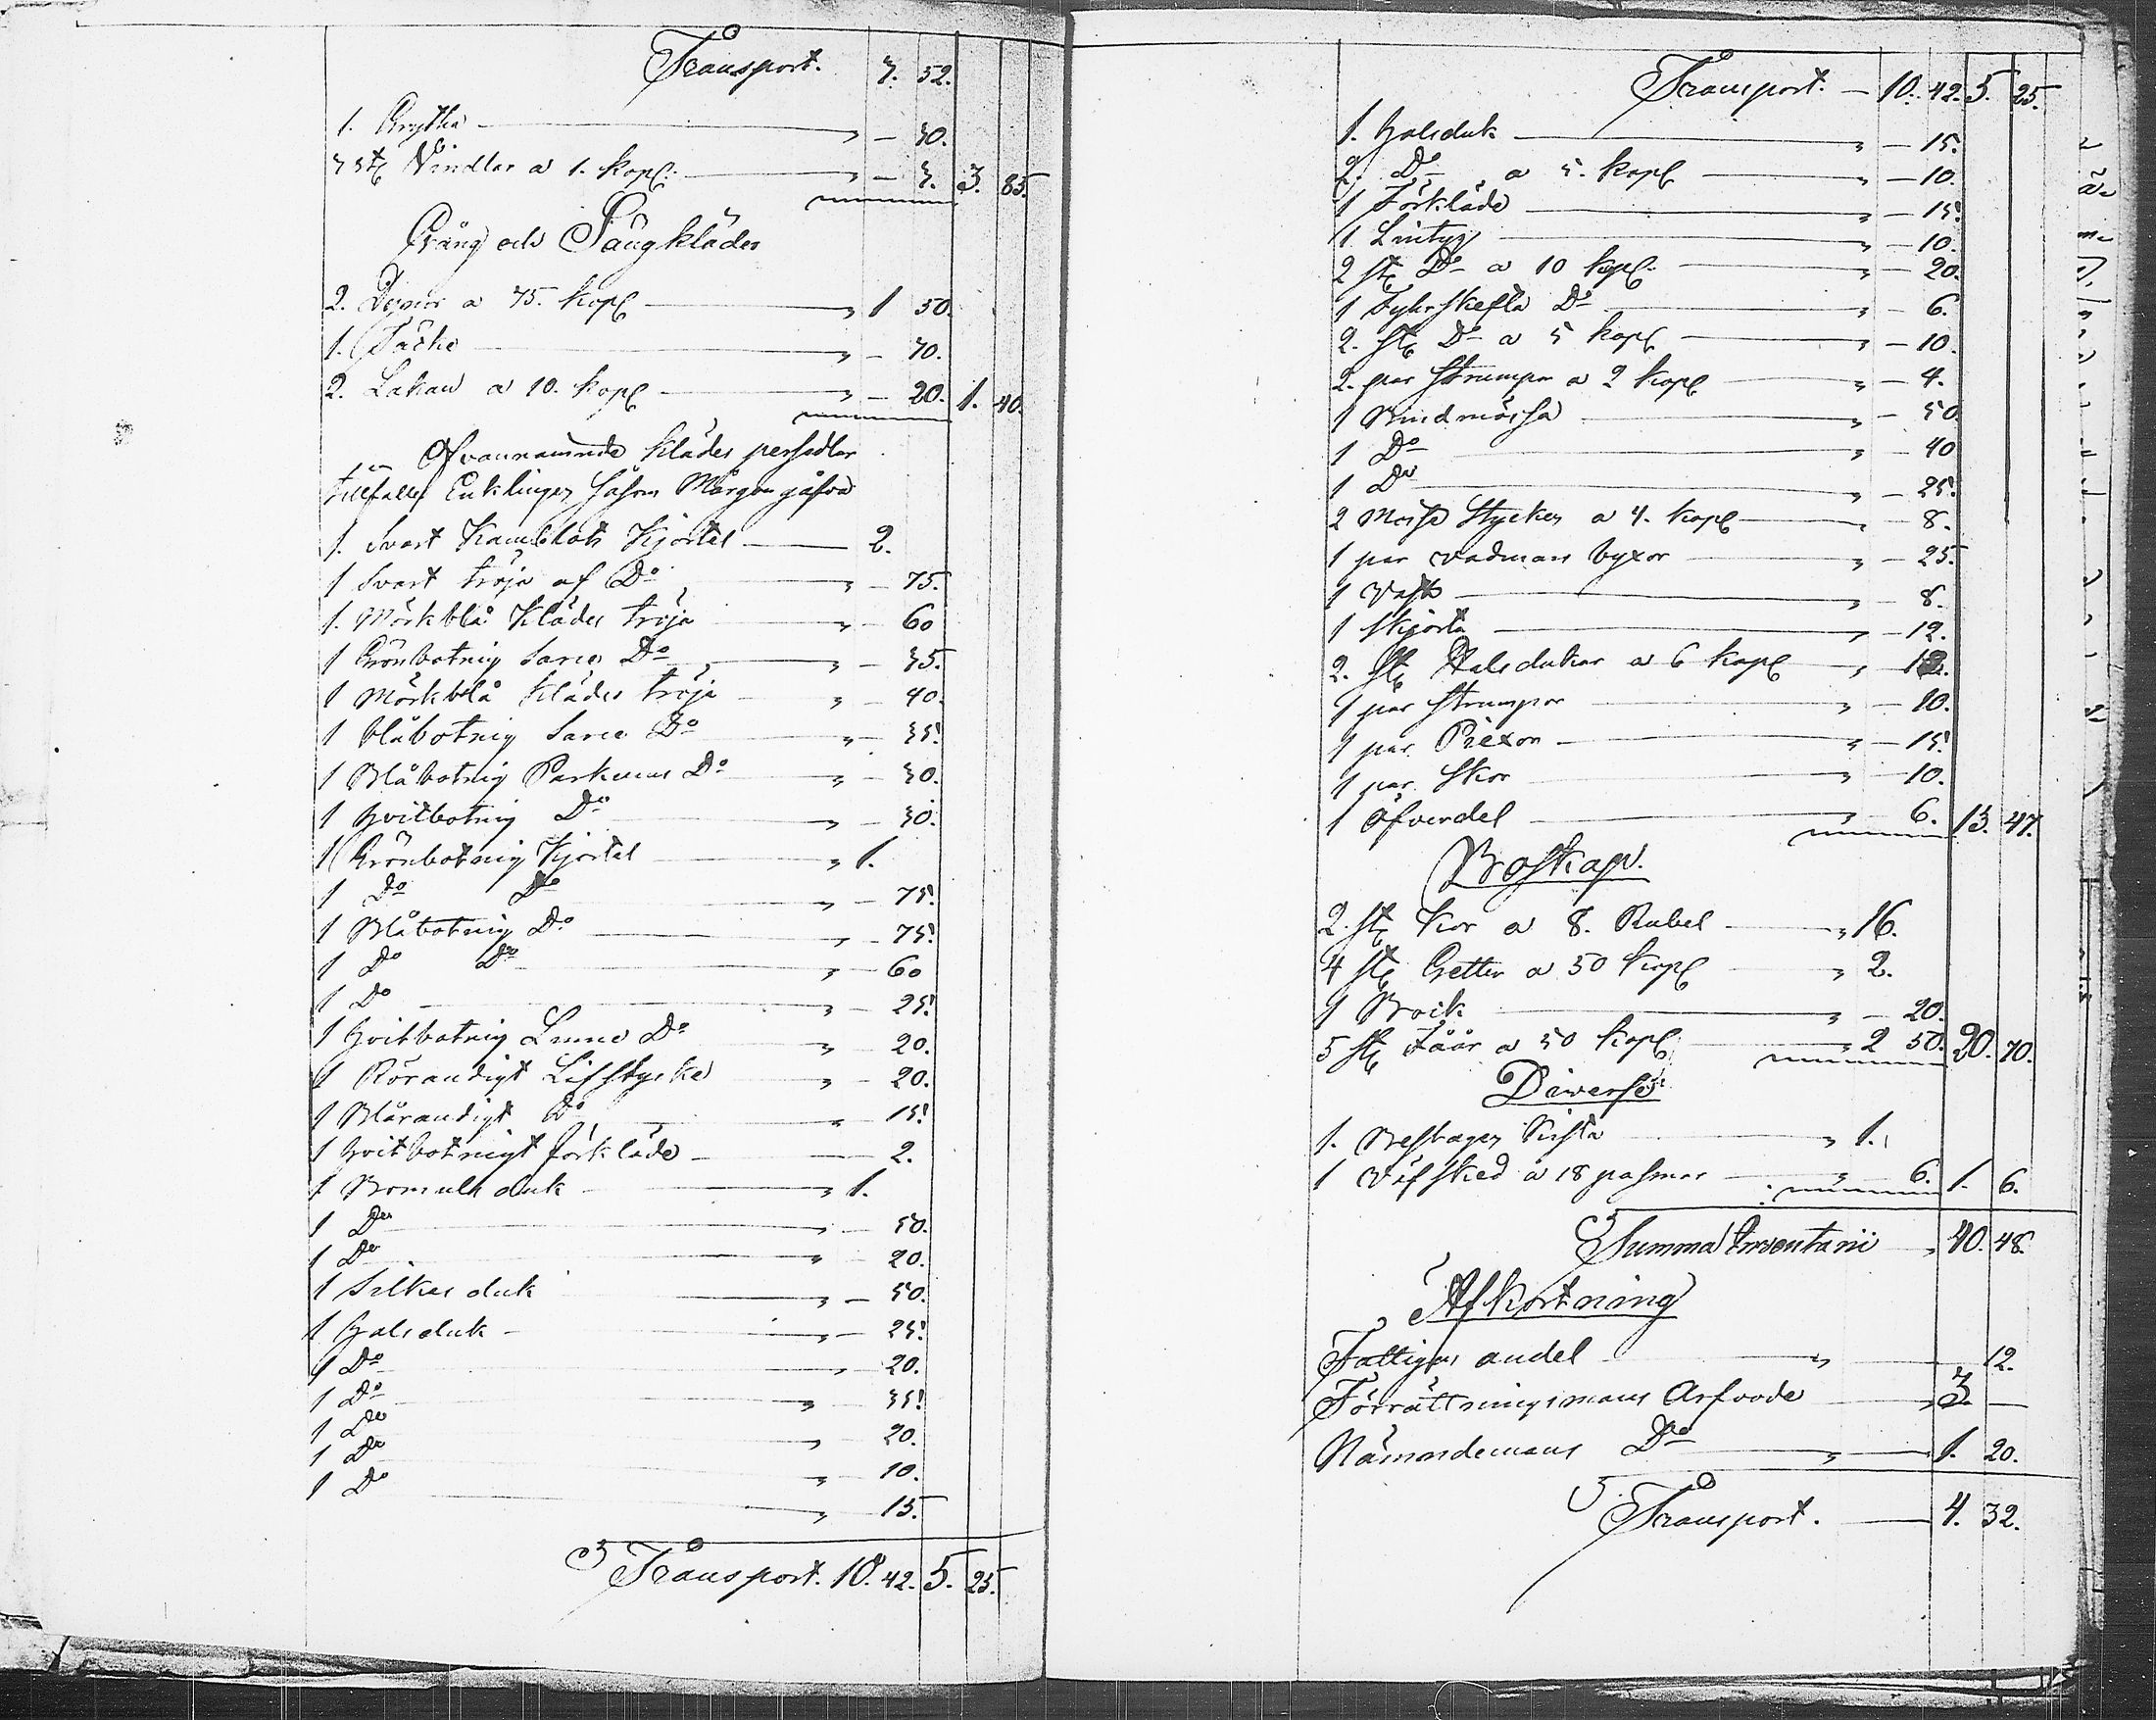 Transport. 3. 52.
1. Grytha " — 30.
3 stg Vindlar a 1. kopl. " — 3. 3. 85.
Gång och Sängkläder
2. Dynor a 75. kopl " 1 50.
1. Täcke " — 70.
2. Lakan a 10. kopl " — 20. 1. 40.
Ofvannämnde klädes persedlar
tillfaller Enklingen såsom Morgongåfva
1. Svart Kamblots Kjortel 2.
1 Svart tröja af Do " — 75.
1. Mörkblå Klädes tröja " — 60
1 Grönbotnig Do " — 35.
1 Mörkblå Klädes tröja " — 40.
1 blåbotnig Do " — 35.
1 Blåbotnig Parkums Do " — 30.
1 hvitbotnig Do " — 30.
1 Grönbotnig Kjortel " 1.
1 Do Do " — 75.
1 Blåbotnig Do " — 75.
1 Do Do " — 60
1 Do " — 25.
1 hvitbotnig Linne Do " — 20.
1 Rörandigt Lifstycke " — 20.
1 Blårandigt Do " 15.
1 hvitbotnigt förkläde — 2.
1 Bomulls duk " 1.
1 Do " — 50.
1 Do " — 20.
1 Silkes duk " — 50.
1 halsduk " — 25.
1 Do " — 20.
1 Do " — 35.
1 Do " — 20.
1 Do " — 10.
1 Do " — 15.
Transport. 10. 42. 5. 25.
Transport. — 10. 42. 5. 25.
1. halsduk " — 15.
2. Do a 5. kopl " — 10.
1 Förkläde " — 15.
1. Lintyg " — 10.
2 stg Do a 10 kopl. " — 20.
1 Fyhrskefta Do " — 6.
2. stg Do a 5 kopl " — 10.
2. par Strumpor a 2 kopl " — 4.
1 Bindmössa " — 50
1 Do " — 40
1 Do " — 25.
2 Mössa Stycken a 4. kopl " — 8.
1 par vadmans byxor " — 25.
1 Väst " — 8.
1 Skjorta " — 12.
2. stg Halsdukar a 6 kopl " 12.
1 par Strumpor " — 10.
1 par. Piexor " — 15.
1 par. Skor " — 10.
1 öfverdel " 6. 13. 47.
Boskap.
2. stg Kor a 8. Rubel " 16.
4 stg Getter a 50 kopl " 2.
1 Bock " — 20.
5 stg Fåår a 50 kopl " 2 50. 20. 70.
Diverse
1. Beslagen kista " 1.
1 Väfsked a 18 pasmor " 6. 1. 6.
Summa Inventarii " 40. 48.
Afkortning
Fattiges andel " 12.
Förrättningsmans Arfvode " 3. —
Nämndemans Do " 1. 20.
Transport. 4. 32.